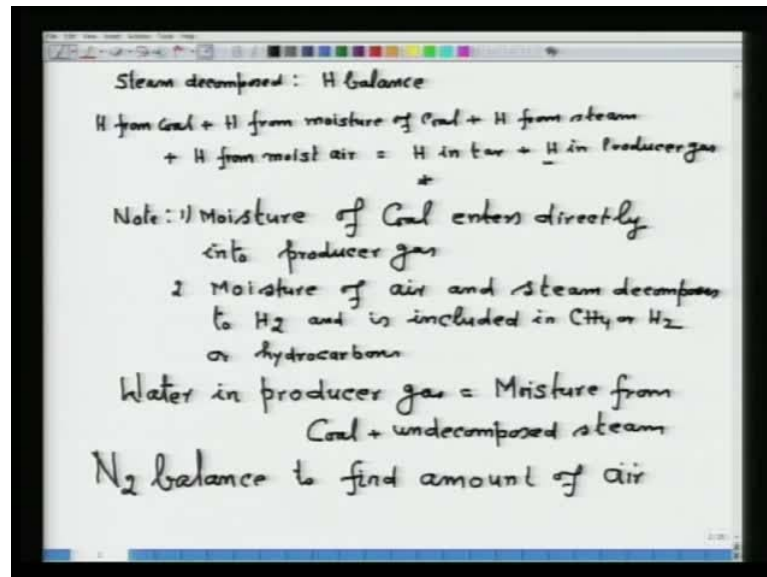 Steam decomposed: H balance
H from Coal + H from moisture of Coal + H from steam
+ H from moist air = H in tar + H in Producer gas
+
Note: 1) Moisture of Coal enters directly
into producer gas
2 Moisture of air and steam decomposes
to H2 and is included in CH4 or H2
or hydrocarbons
Water in producer gas = Moisture from
Coal + undecomposed steam
N2 balance to find amount of air